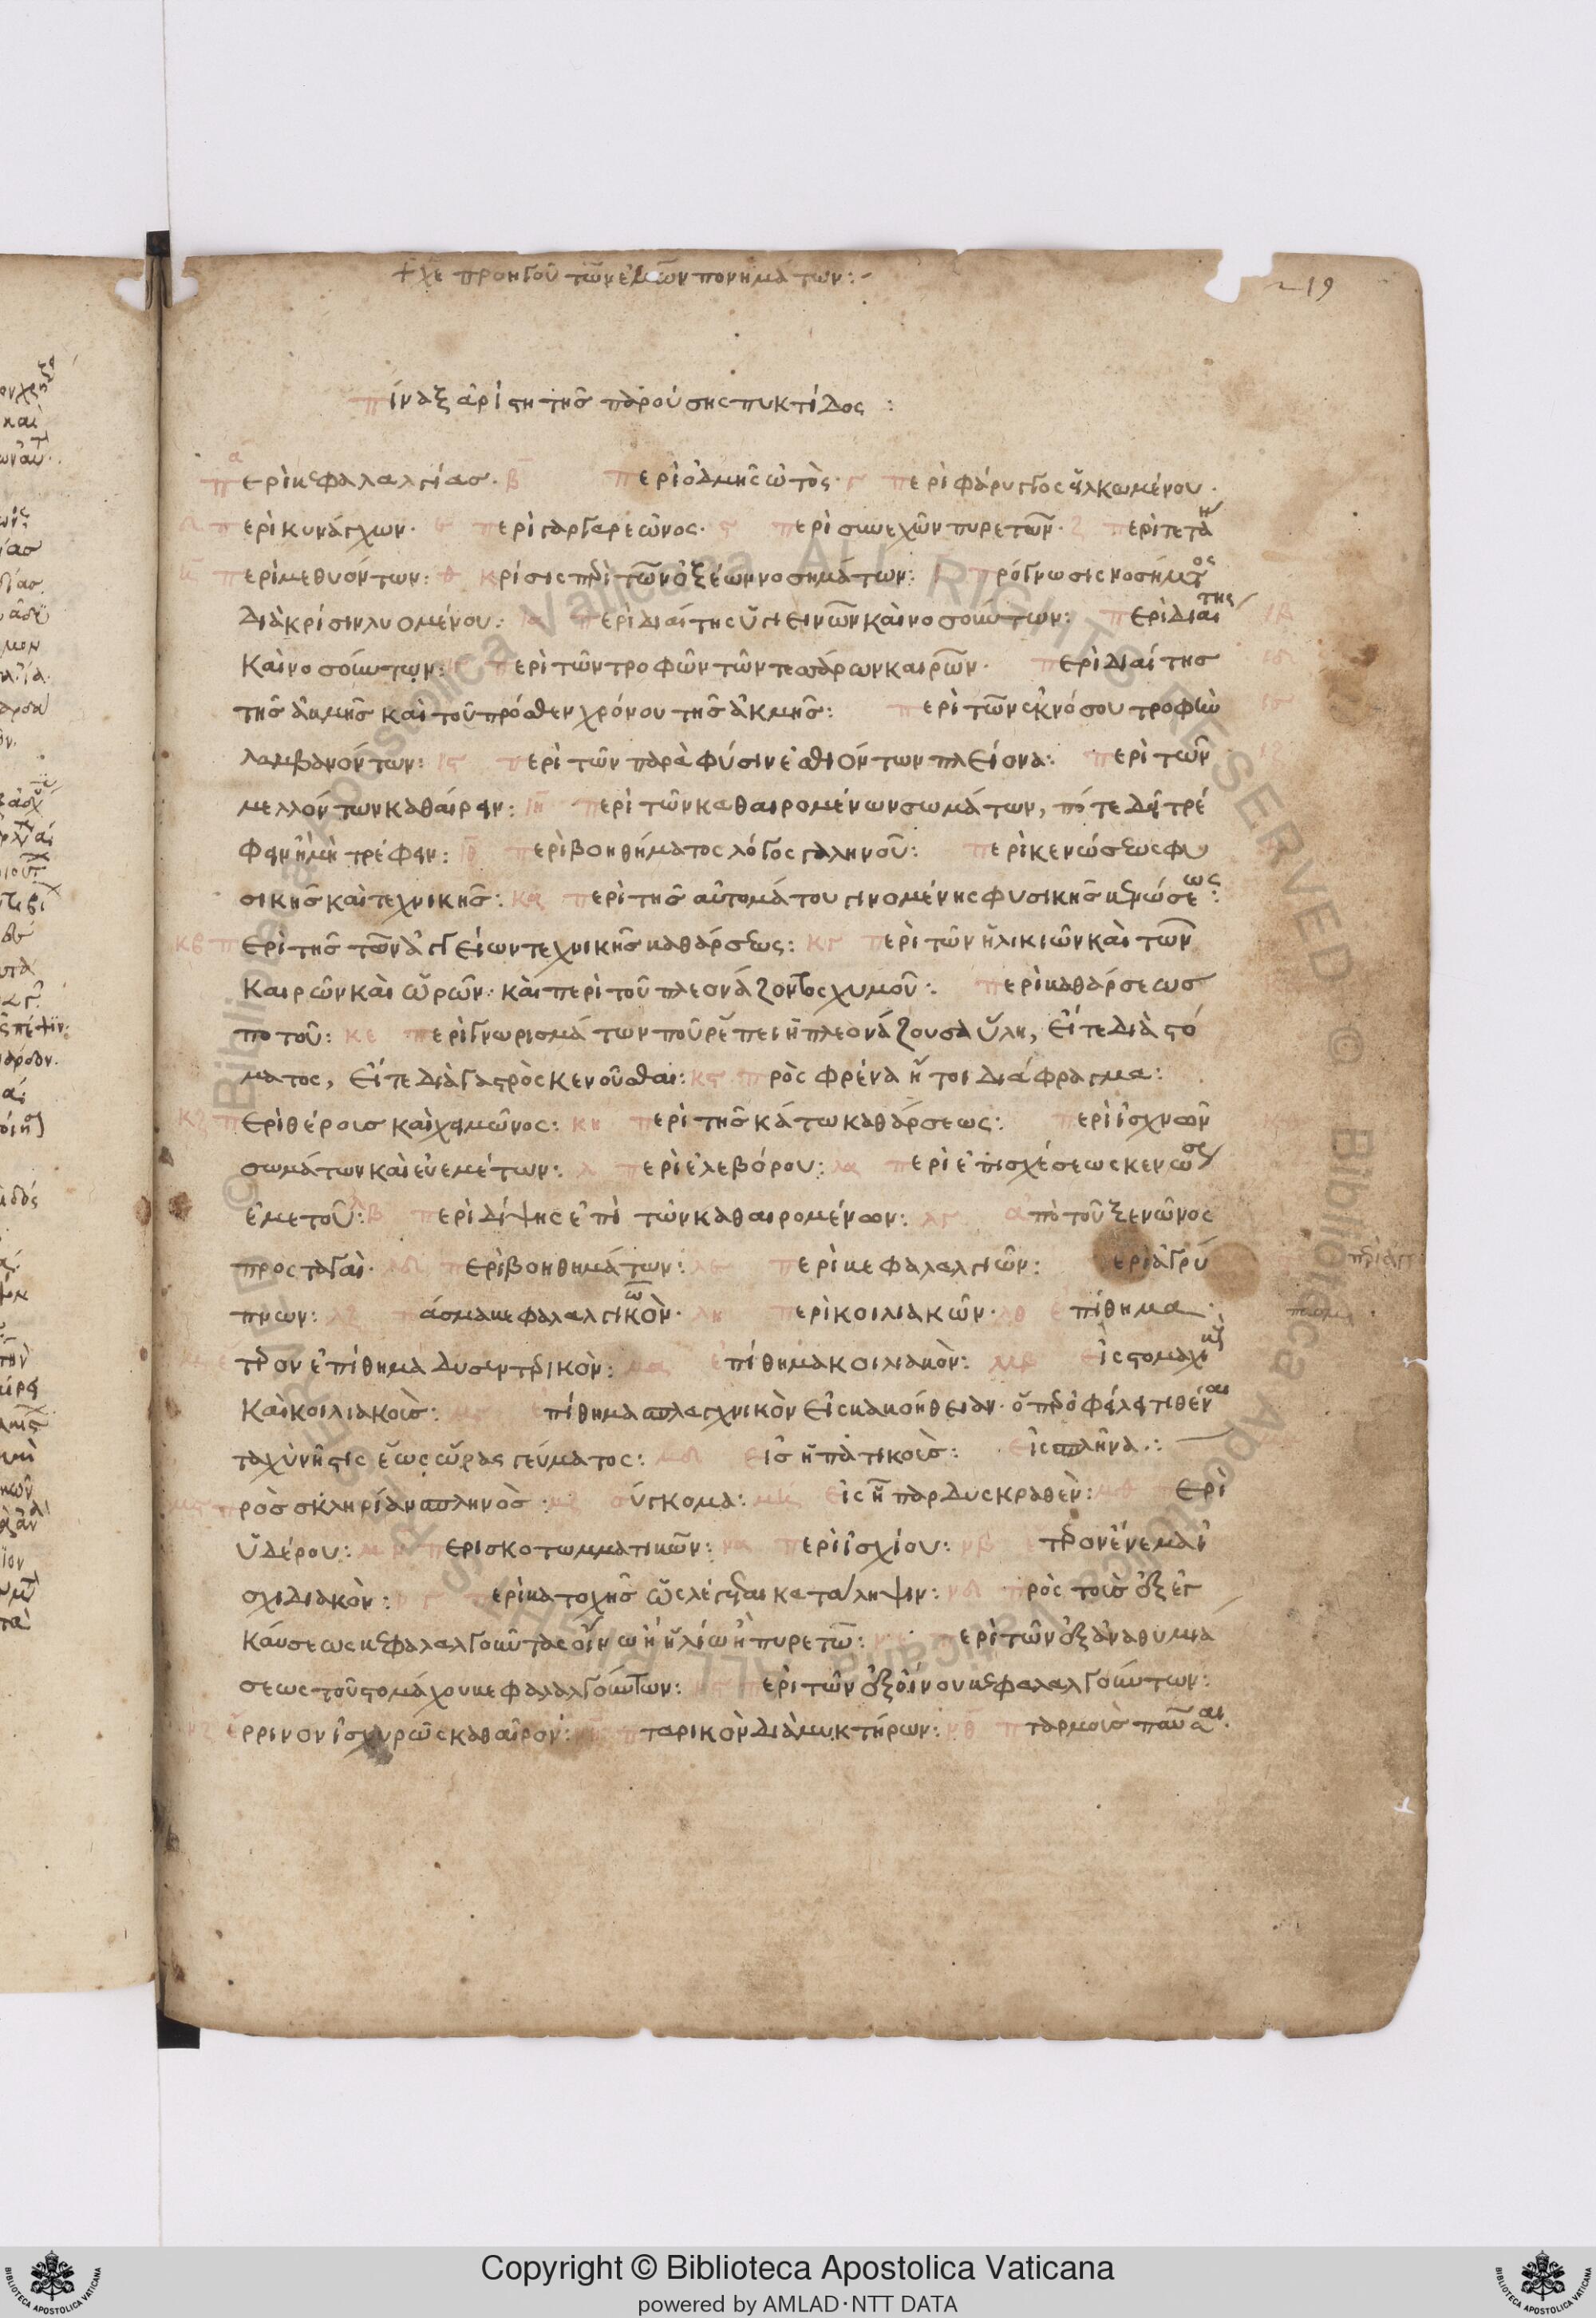 + χε προηγοῦ τῶν ἐμῶν πονημάτων:-
19
πίναξ ἀρίστη τῆς παρούσης πυκτίδος :
α περὶ κεφαλαλγίας. β περὶ ὀδμῆς ὠτός. γ περὶ φάρυγγος εἱλκωμένου.
δ περὶ κυνάγχων. ε περὶ γαργαρεῶνος. ς περὶ συνεχῶν πυρετῶν. ζ περὶ τετα
η περὶ μεθυόντων: θ κρίσις περὶ τῶν ὀξέων νοσημάτων: ι πρόγνωσις νοσήματος
διὰ κρίσιν λυομένου: ια περὶ διαίτης ὑγιεινῶν καὶ νοσούντων: περὶ διαίτης ιβ
καὶ νοσούντων: ιγ περὶ τῶν τροφῶν τῶν τεσσάρων καιρῶν. περὶ διαίτης ιδ
τῆς ἀκμῆς καὶ τοῦ πρόσθεν χρόνου τῆς ἀκμῆς: περὶ τῶν ἐκ νόσου τροφὴν
λαμβανόντων: ις περὶ τῶν παρὰ φύσιν ἐσθιόντων πλείονα: περὶ τῶν ιζ
μελλόντων καθαίρειν: ιη περὶ τῶν καθαιρομένων σωμάτων, πότε δεῖ τρέ
φειν ἢ μὴ τρέφειν: ιθ περὶ βοηθήματος λόγος γαληνοῦ: περὶ κενώσεως φυ
σικῆς καὶ τεχνικῆς: κα περὶ τῆς αὐτομάτου γινομένης φυσικῆς κενώσεως:
κβ περὶ τῆς τῶν ἀγγείων τεχνικῆς καθάρσεως: κγ περὶ τῶν ἡλικιῶν καὶ τῶν
καιρῶν καὶ ὡρῶν: καὶ περὶ τοῦ πλεονάζοντος χυμοῦ: περὶ καθάρσεως
ποτοῦ: κε περὶ γνωρισμάτων ποῦ ῥέπει ἡ πλεονάζουσα ὕλη, εἴτε διὰ στό
ματος, εἴτε διὰ γαστρὸς κενοῦσθαι: κς πρὸς φρένα ἤτοι διάφραγμα:
κζ περὶ θέροις καὶ χειμῶνος: κη περὶ τῆς κάτω καθάρσεως: περὶ ἰσχνῶν κθ
σωμάτων καὶ εὐεμέτων: λ περὶ ἐλεβόρου: λα περὶ ἐπισχέσεως κενώσε
ἐμετοῦ: λβ περὶ δίψης ἐπὶ τῶν καθαιρομένων: λγ ἀπὸ τοῦ ξενῶνος
προσταγαὶ. λδ περὶ βοηθημάτων: λε περὶ κεφαλαλγιῶν: περὶ ἀγρυ
πνιων: λζ πάσμα κεφαλαλγικῶν. λη περὶ κοιλιακῶν. λθ ἐπίθημα.
μ ἕτερον ἐπίθημα δυσεντερικόν: μα ἐπίθημα κοιλιακόν: μβ εἰς στομαχι
καὶ κοιλιακοῖς: μγ ἐπίθημα σπλαγχνικὸν εἰς κακοήθειαν. ὅπερ ὀφείλει τιθέναι
ταχὺ νῆστις ἕως ὥρας γεύματος: μδ εἰς ἡπατικοῖς: εἰς σπλῆνα.:
μς πρὸς σκληρίαν σπληνός. μζ σύγκομα: μη εἰς ἧπαρ δυσκραθέν: μθ περὶ
ὑδέρου: ν περὶ σκοτωμματικῶν: να περὶ ἰσχίου: νβ ἕτερον ἔνεμα ἰ
σχιδιακόν: νγ περὶ κατοχῆς ὡς λέγεται κατάληψιν: νδ πρὸς τοῖς ὀξ ἐγ
καύσεως κεφαλαλγοῦντας οἴνω ἢ ἡλίω ἢ πυρετῶ: νε περὶ τῶν ἐξ ἀναθυμιά
σεως τοῦ στομάχου κεφαλαλγούντων: νς περὶ τῶν ἐξ οἴνου κεφαλαλγούντων:
νζ ἔρρινον ἰσχυρῶς καθαῖρον: νη πταρικὸν διὰ μυκτήρων: νθ πταρμοὺς παῦσαι.
Copyright © Biblioteca Apostolica Vaticana
powered by AMLAD·NTT DATA